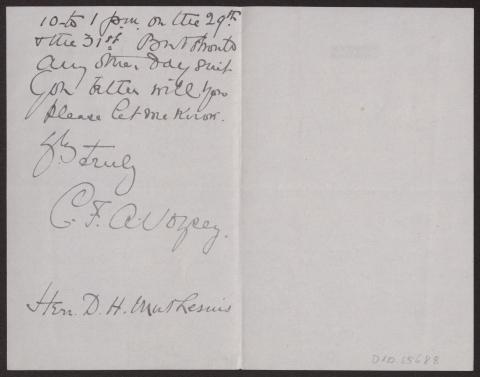 10 to 1 p.m. on the 29th
& the 31st. But should
any other day suit
you better will you
please let me know.
Yrs truly
C. F. A. Voysey.
Herr. D. H. Muthesius
D 102-15688